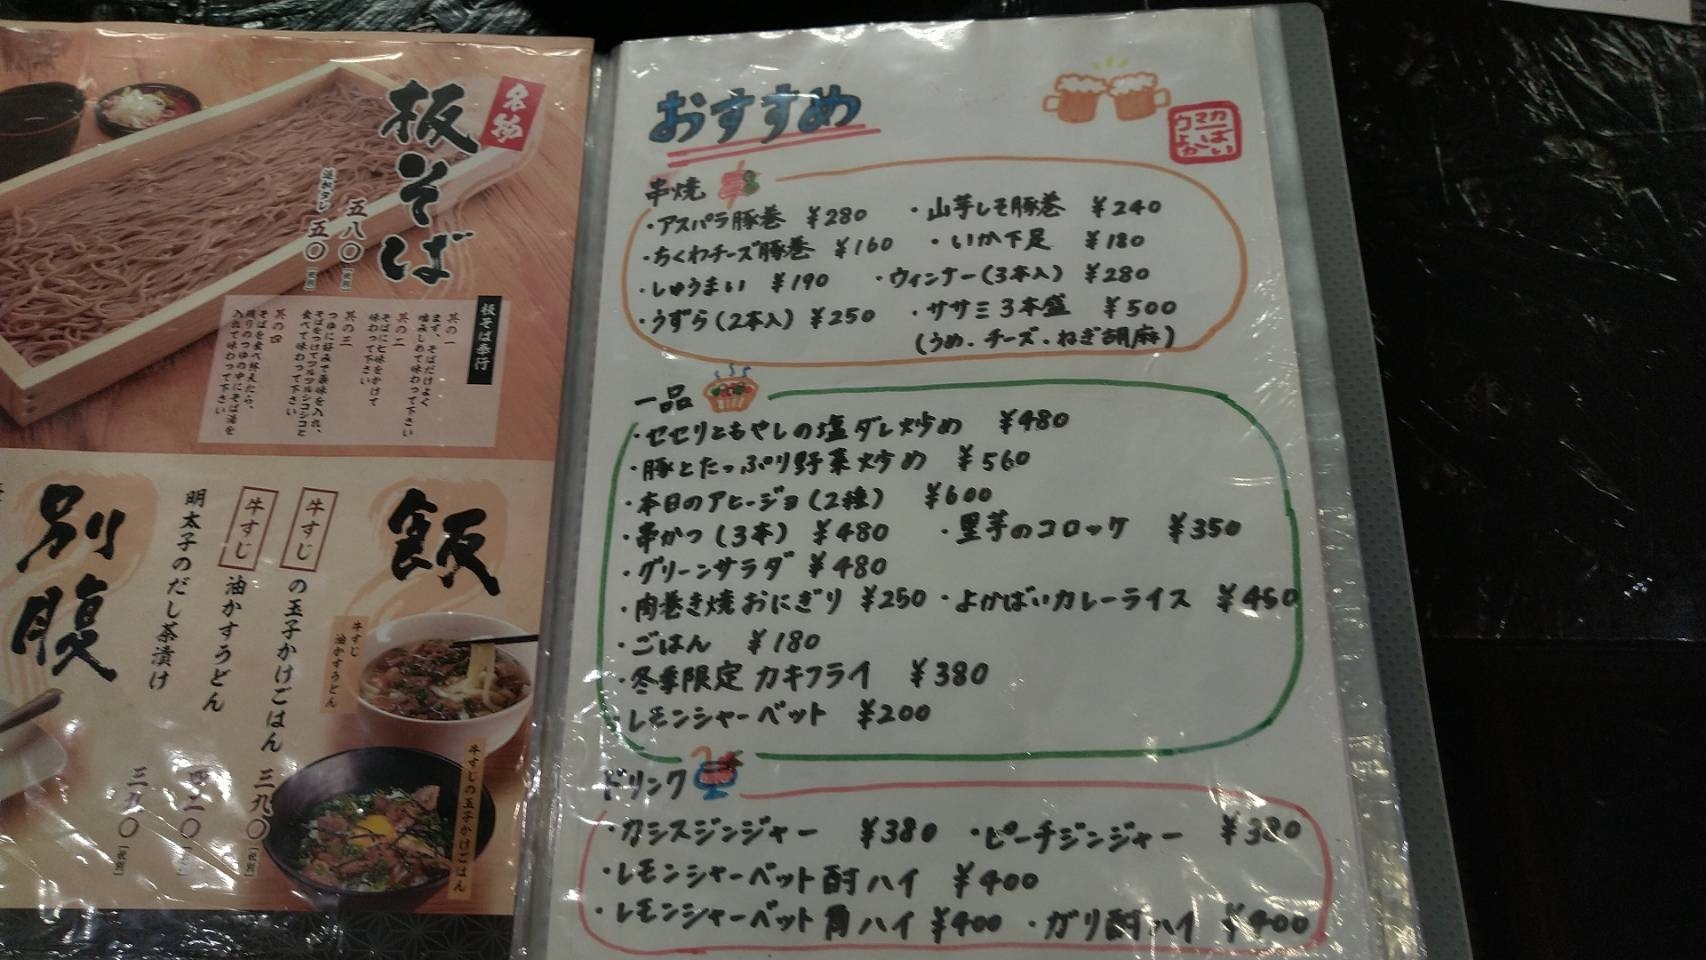 名物
板そば
五八〇
五〇
板そば奉行
其の一
まず、そばだけよく
噛みしめて味わって下さい
其の二
そばに七味をかけて
味わって下さい
其の三
つゆに好みで薬味を入れ、
そばをつけてツルツルシコシコと
食べて味わって下さい
其の四
そばを食べ終えたら、
残りのつゆの中にそば湯を
入れて味わって下さい
飯
牛すじの玉子かけごはん 三九〇
牛すじ油かすうどん 四二〇
明太子のだし茶漬け 三九〇
牛すじ
油かすうどん
牛すじの玉子かけごはん
別腹
おすすめ
ウマカ
よかばい
串焼
・アスパラ豚巻 ¥280 ・山芋しそ豚巻 ¥240
・ちくわチーズ豚巻 ¥160 ・いか下足 ¥180
・しゅうまい ¥190 ・ウィンナー(3本入) ¥280
・うずら(2本入) ¥250 ・ササミ3本盛 ¥500
(うめ・チーズ・ねぎ胡麻)
一品
・セセリともやしの塩ダレ炒め ¥480
・豚とたっぷり野菜炒め ¥560
・本日のアヒージョ(2種) ¥600
・串かつ(3本) ¥480 ・里芋のコロッケ ¥350
・グリーンサラダ ¥480
・肉巻き焼おにぎり ¥250 ・よかばいカレーライス ¥450
・ごはん ¥180
・冬季限定 カキフライ ¥380
・レモンシャーベット ¥200
ドリンク
・カシスジンジャー ¥380 ・ピーチジンジャー ¥380
・レモンシャーベット酎ハイ ¥400
・レモンシャーベット角ハイ ¥400 ・ガリ酎ハイ ¥400